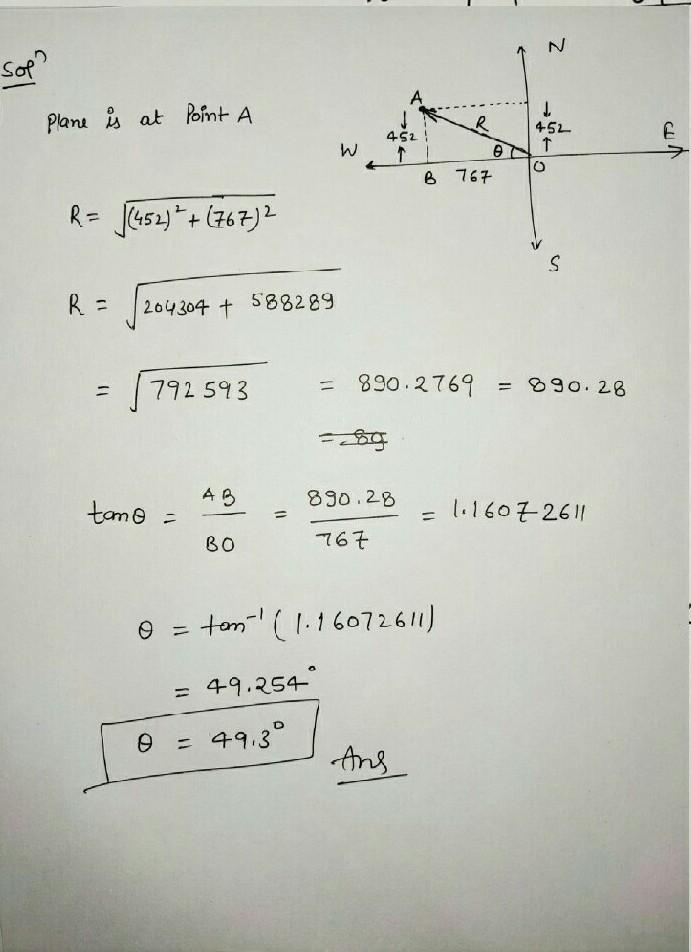 Solⁿ
N
Plane is at Point A
A
R
↓
452
↑
↓
452
↑
W
θ
E
B 767
O
S
R = √(452)² + (767)²
R = √204304 + 588289
= √792593 = 890.2769 = 890.28
= 89
tanθ = AB/BO = 890.28/767 = 1.16072611
θ = tan⁻¹ (1.16072611)
= 49.254°
θ = 49.3°
Ans